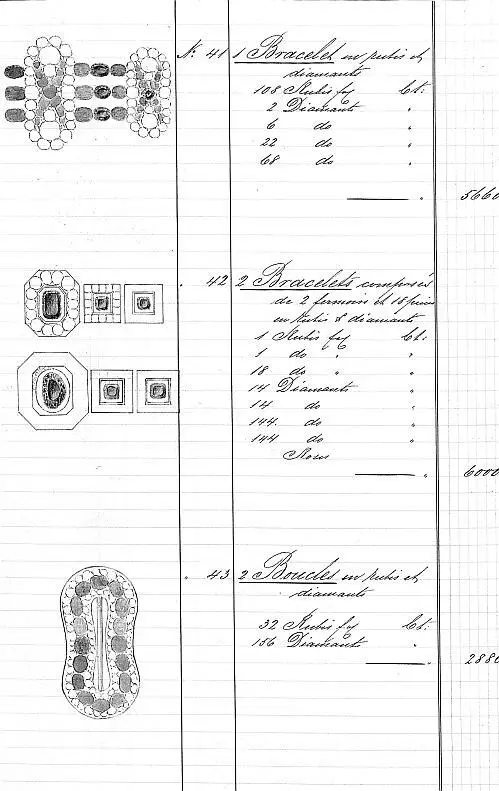 N.° 41 1 Bracelet en rubis et
diamants
108 Rubis Ct:
2 Diamants "
6 do "
22 do "
68 do "
" 5660
42 2 Bracelets composés
de 2 fermoirs et 16 pièces
en rubis & diamants
1 Rubis Ct:
1 do " "
18 do " "
14 Diamants "
14 do "
144. do "
144 do "
Roses
" 6000
43 2 Boucles en rubis et
diamants
32 Rubis Ct:
156 Diamants "
" 2880